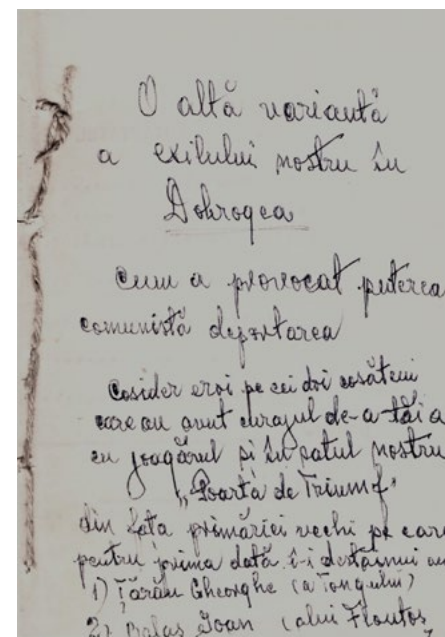 O altă variantă
a exilului nostru în
Dobrogea
cum a provocat puterea
comunistă deportarea
Cosider eroi pe cei doi cosăteni
care au avut curajul de-a tăia
cu joagărul și în satul nostru
„Poarta de Triumf"
din fața primăriei vechi pe care
pentru prima dată î-i destăinui au
1) Țărău Gheorghe (a Tongului)
2) Balaș Ioan (alui Floutos